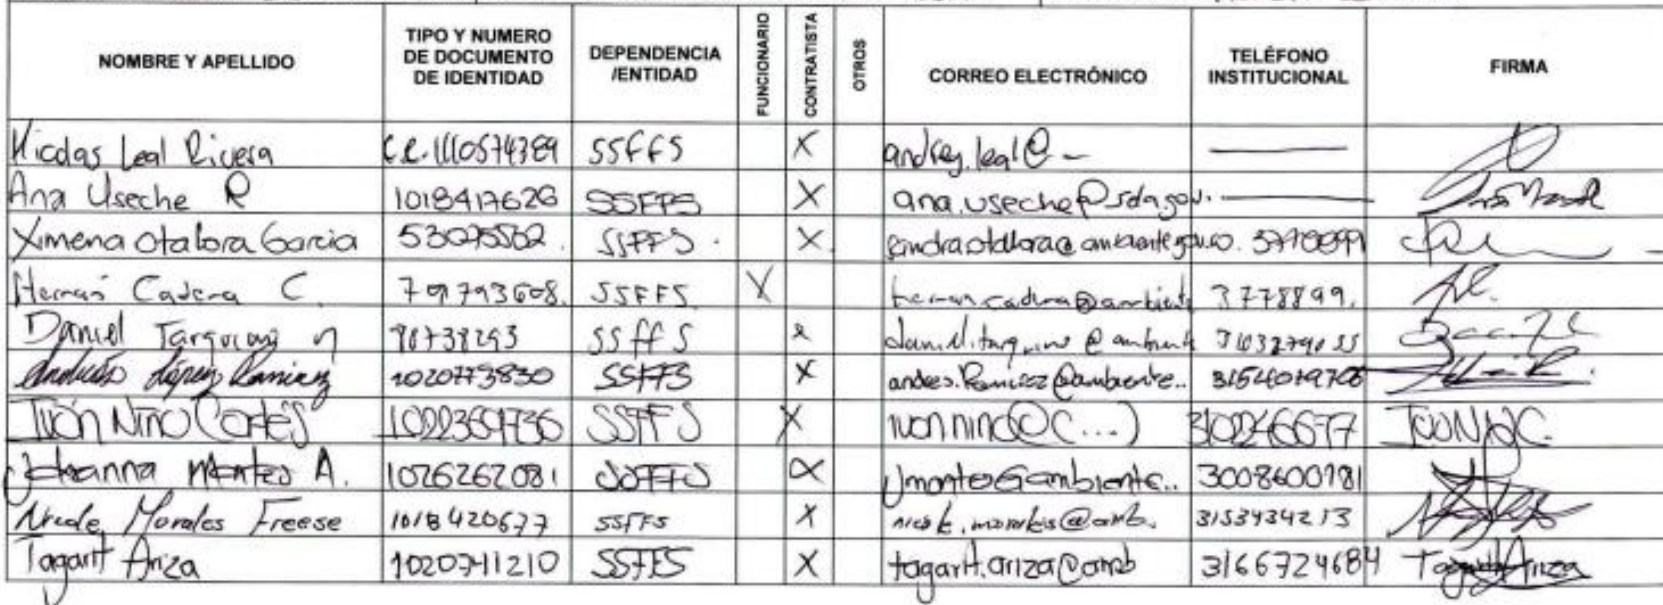 NOMBRE Y APELLIDO TIPO Y NUMERO DE DOCUMENTO DE IDENTIDAD DEPENDENCIA /ENTIDAD FUNCIONARIO CONTRATISTA OTROS CORREO ELECTRÓNICO TELÉFONO INSTITUCIONAL FIRMA
Nicolas Leal Rivera C.C. 1110574389 SSFFS X andrey.leal@ -
Ana Useche R 1018417628 SSFFS X ana.useche@sda.gov.
Ximena Otalora Garcia 53075562. SSFFS. X. 3778899
Hernan Cadena C. SSFFS X hernan.cadena@ambiente 3778899.
Daniel SSFFS x
Andrés López Ramirez 1020773830 SSFFS X andres.Ramirez@ambiente..
Ivón Niño Cortés SSFFS X ivon nino@(...) 3102466677
Johanna Montes A. 1026262081 SSFFS X Jmontes@ambiente.. 3008600781
Nicole Morales Freese 1018420677 SSFFS X 3153434213
Tagarit Ariza 1020741210 SSFFS X tagarit.ariza@amb 3166724684 Tagarit Ariza